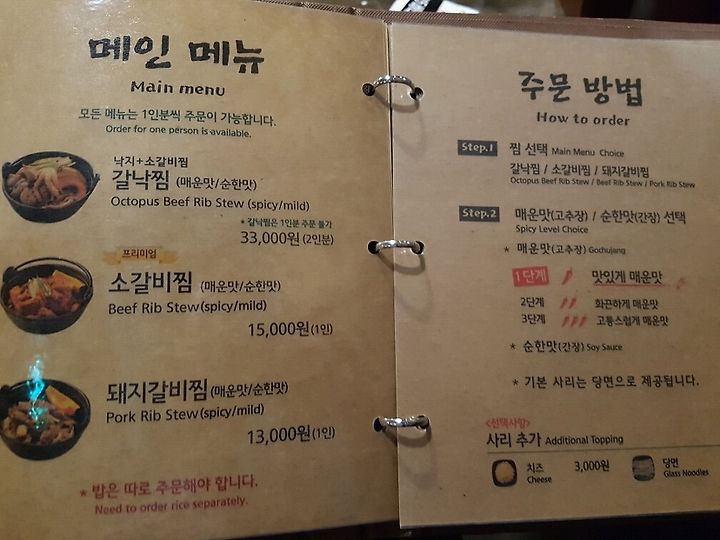 메인 메뉴
Main menu
모든 메뉴는 1인분씩 주문이 가능합니다.
Order for one person is available.
낙지+소갈비찜
갈낙찜 (매운맛/순한맛)
Octopus Beef Rib Stew (spicy/mild)
* 갈낙찜은 1인분 주문 불가
33,000원 (2인분)
프리미엄
소갈비찜 (매운맛/순한맛)
Beef Rib Stew (spicy/mild)
15,000원 (1인)
돼지갈비찜 (매운맛/순한맛)
Pork Rib Stew (spicy/mild)
13,000원 (1인)
* 밥은 따로 주문해야 합니다.
Need to order rice separately.
주문 방법
How to order
Step.1 찜 선택 Main Menu Choice
갈낙찜 / 소갈비찜 / 돼지갈비찜
Octopus Beef Rib Stew / Beef Rib Stew / Pork Rib Stew
Step.2 매운맛(고추장) / 순한맛(간장) 선택
Spicy Level Choice
* 매운맛(고추장) Gochujang
1단계 맛있게 매운맛
2단계 화끈하게 매운맛
3단계 고통스럽게 매운맛
* 순한맛(간장) Soy Sauce
* 기본 사리는 당면으로 제공됩니다.
<선택사항>
사리 추가 Additional Topping
치즈 3,000원 당면
Cheese Glass Noodles